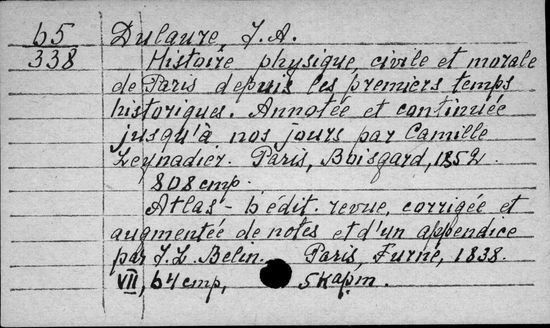 65
338
Dulaure, J. A.
Histoire physique civile et morale
de Paris depuis les premiers temps
historiques. Annotée et continuée
jusqu'à nos jours par Camille
Leynadier. Paris, Boisgard, 1852.
808 стр.
Atlas - 6 édit. revue, corrigée et
augmentée de notes et d'un appendice
par J. L. Belin. Paris, Furne, 1838.
VII, 64 стр, 5 карт.